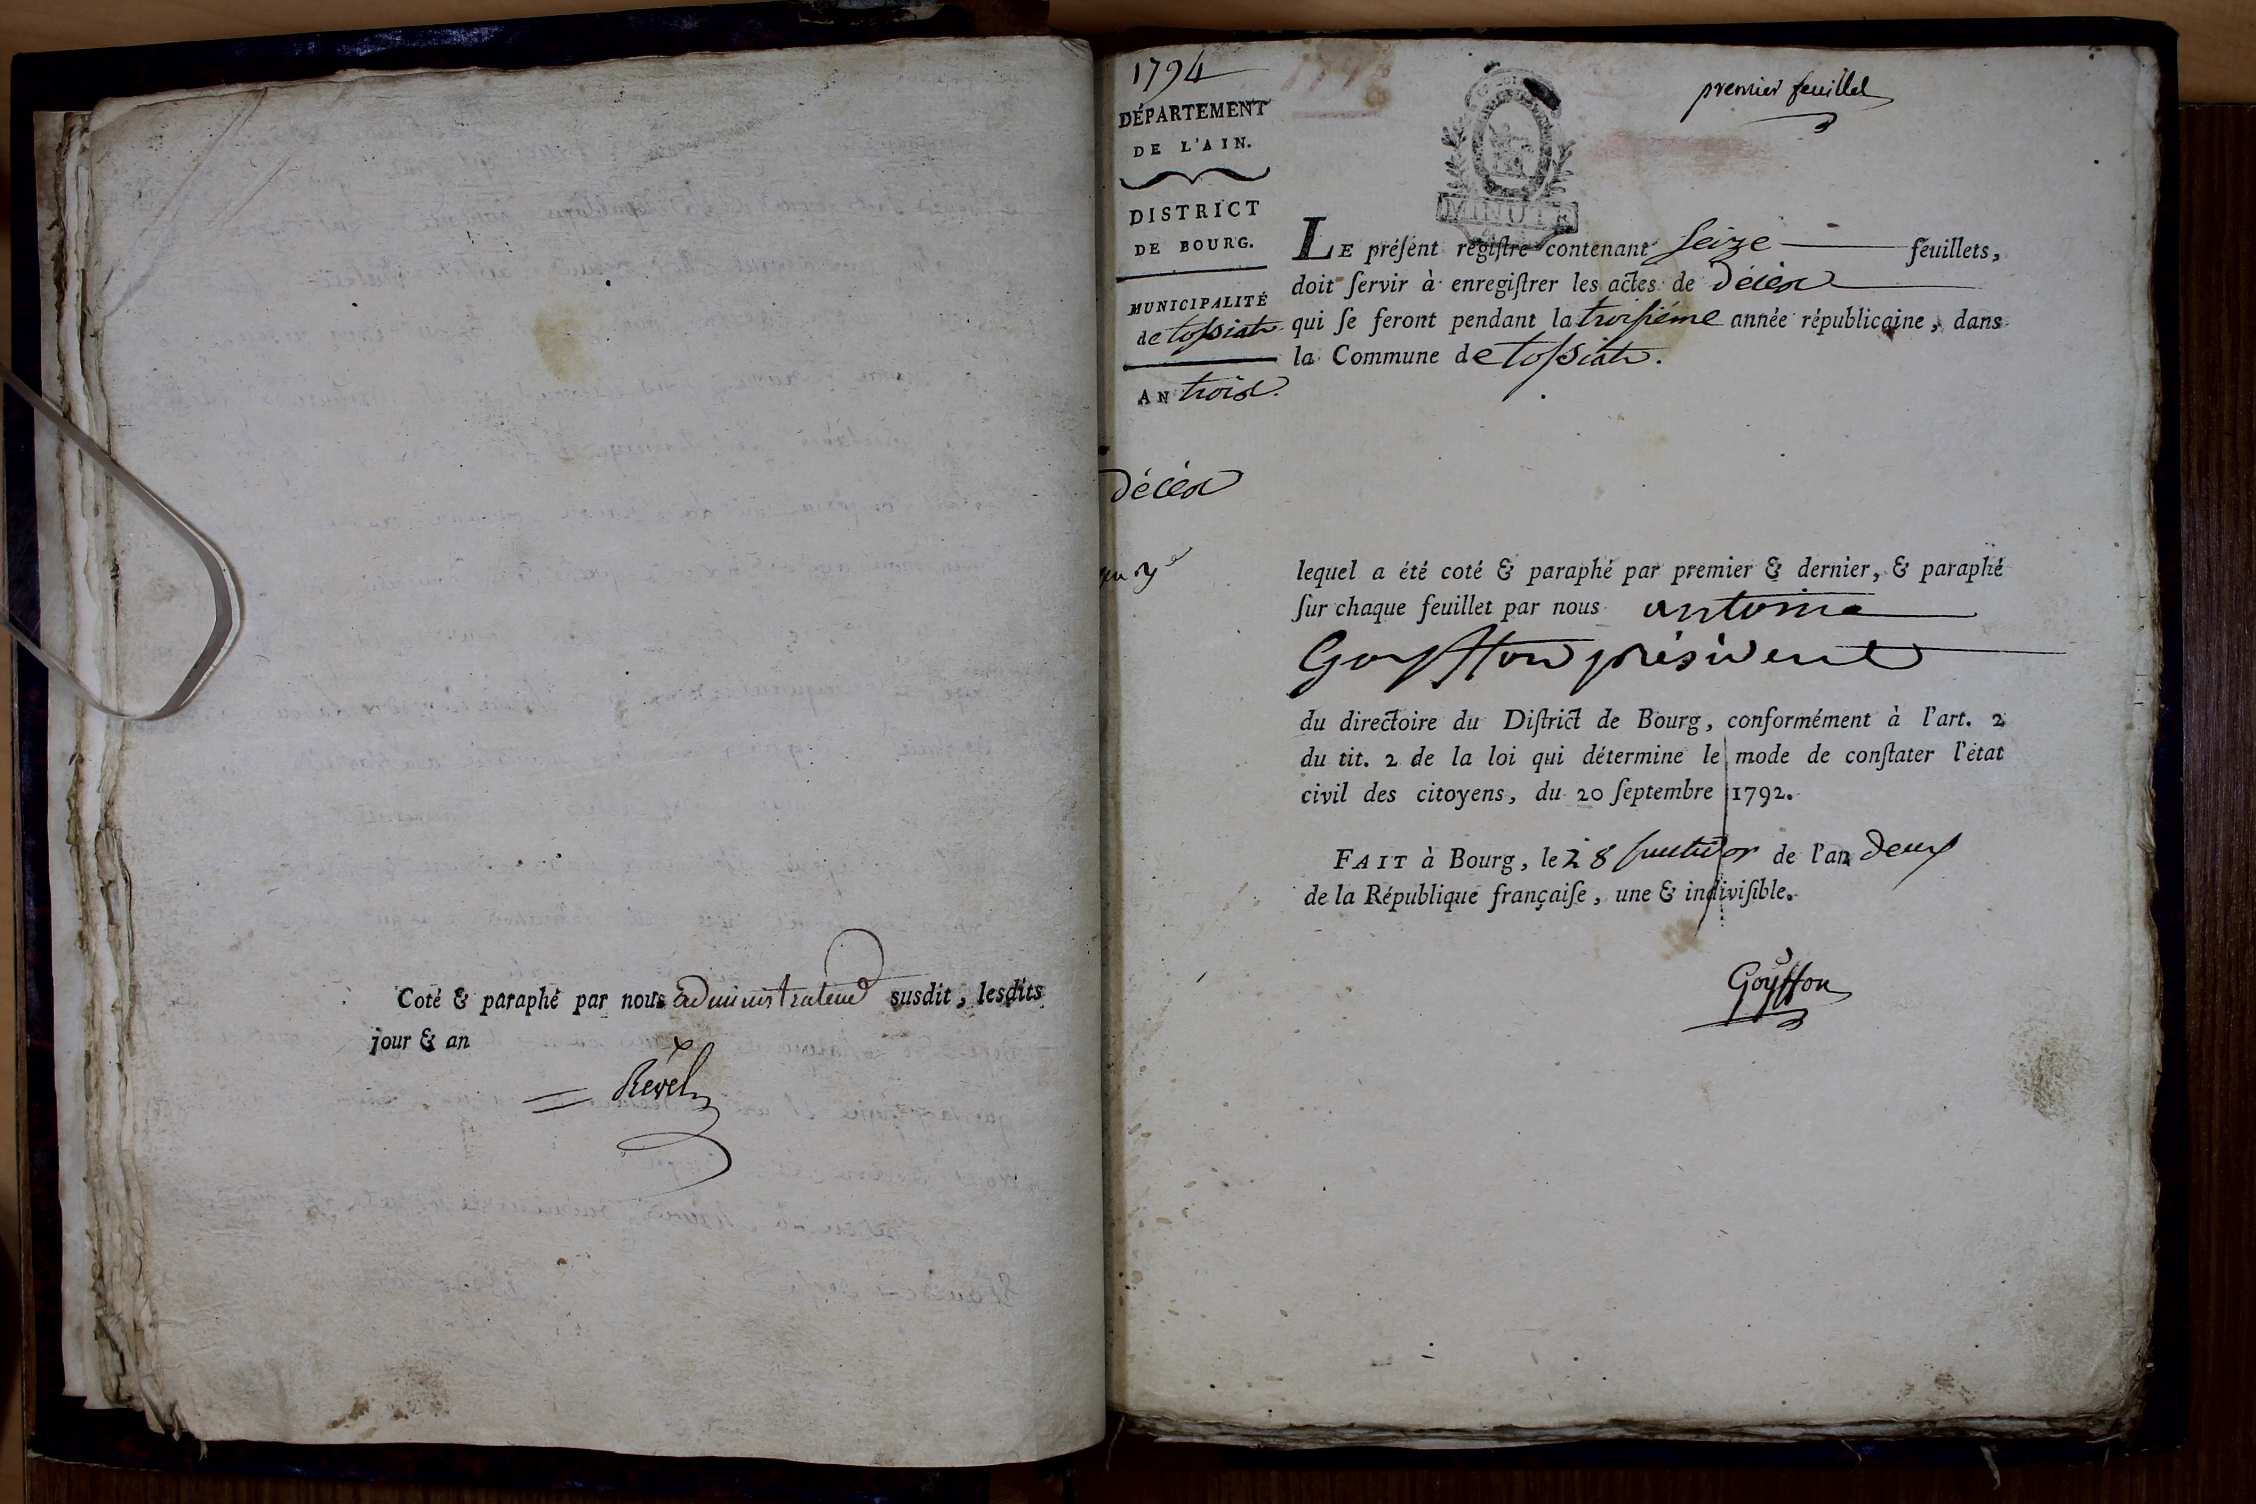 Coté & paraphé par nous administrateur susdit, lesdits
jour & an
Revel
1794
premier feuillet
DÉPARTEMENT
DE L'AIN.
DISTRICT
DE BOURG.
MUNICIPALITÉ
de tossiat
AN trois.
décès
MINUTE
LE préſent regiſtre contenant seize feuillets,
doit ſervir à enregiſtrer les actes de décès
qui ſe feront pendant la troisiéme année républicaine, dans
la Commune de tossiat.
lequel a été coté & paraphé par premier & dernier, & paraphé
ſur chaque feuillet par nous antoine
Goyffon président
du directoire du Diſtrict de Bourg, conformément à l'art. 2
du tit. 2 de la loi qui détermine le mode de conſtater l'état
civil des citoyens, du 20 ſeptembre 1792.
FAIT à Bourg, le 28 fructidor de l'an deux
de la République françaiſe, une & indiviſible.
Goyffon